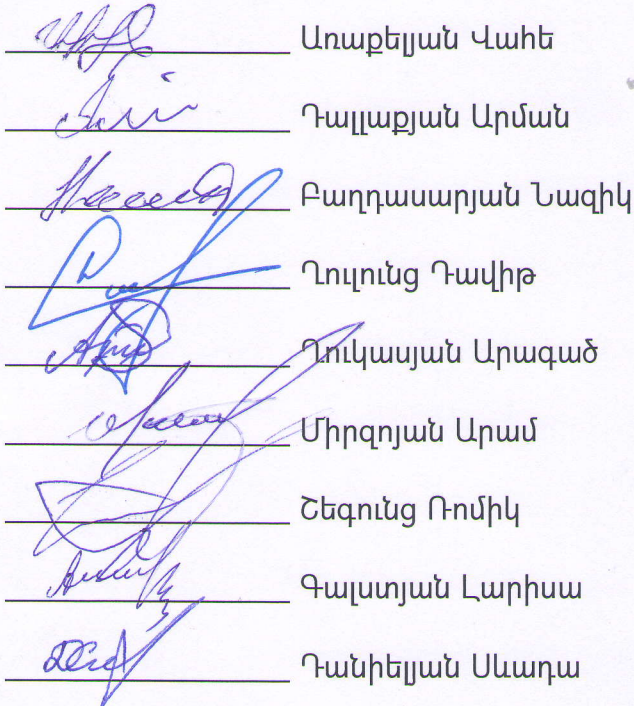 Առաքելյան Վահե
Դալլաքյան Արման
Բաղդասարյան Նազիկ
Ղուլունց Դավիթ
Ղուկասյան Արագած
Միրզոյան Արամ
Շեգունց Ռոմիկ
Գալստյան Լարիսա
Դանիելյան Սևադա